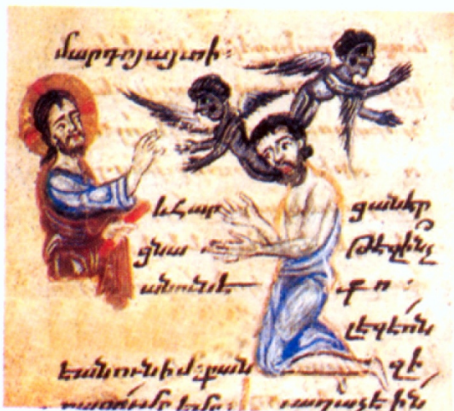 մարդոյայտի։
եհար ցանէր
ցնա թէզինչ
անունէ քո։
լէգէոն
էանունիմ քան զի